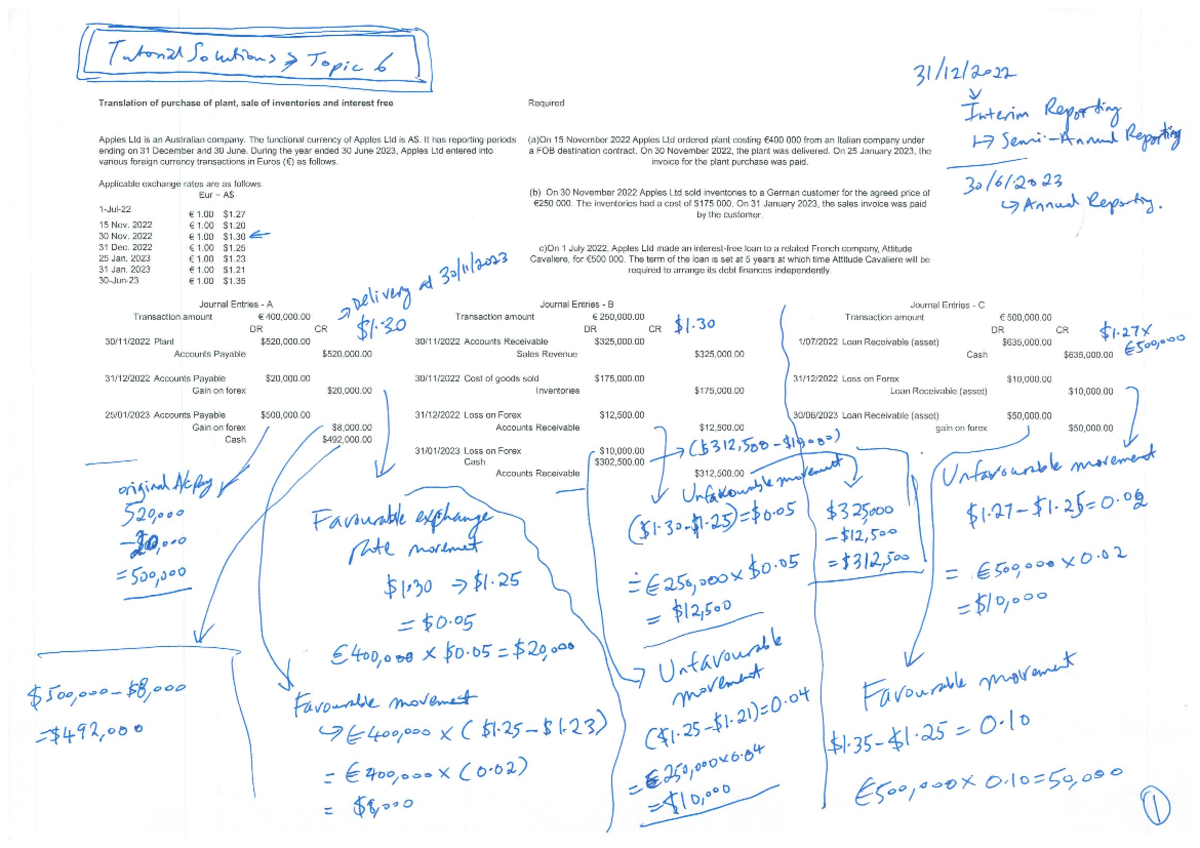 Tutorial Solutions → Topic 6
31/12/2022
Interim Reporting
↳ Semi-Annual Reporting
30/6/2023
↳ Annual Reporting.
Translation of purchase of plant, sale of inventories and interest free
Apples Ltd is an Australian company. The functional currency of Apples Ltd is A$. It has reporting periods
ending on 31 December and 30 June. During the year ended 30 June 2023, Apples Ltd entered into
various foreign currency transactions in Euros (€) as follows.
Applicable exchange rates are as follows.
Eur – A$
1-Jul-22 € 1.00 $1.27
15 Nov. 2022 € 1.00 $1.20
30 Nov. 2022 € 1.00 $1.30 ←
31 Dec. 2022 € 1.00 $1.25
25 Jan. 2023 € 1.00 $1.23
31 Jan. 2023 € 1.00 $1.21
30-Jun-23 € 1.00 $1.35
Required
(a)On 15 November 2022 Apples Ltd ordered plant costing €400 000 from an Italian company under
a FOB destination contract. On 30 November 2022, the plant was delivered. On 25 January 2023, the
invoice for the plant purchase was paid.
(b) On 30 November 2022 Apples Ltd sold inventories to a German customer for the agreed price of
€250 000. The inventories had a cost of $175 000. On 31 January 2023, the sales invoice was paid
by the customer.
c)On 1 July 2022, Apples Ltd made an interest-free loan to a related French company, Attitude
Cavaliere, for €500 000. The term of the loan is set at 5 years at which time Attitude Cavaliere will be
required to arrange its debt finances independently.
Journal Entries - A
Transaction amount € 400,000.00
DR CR
30/11/2022 Plant $520,000.00
Accounts Payable $520,000.00
31/12/2022 Accounts Payable $20,000.00
Gain on forex $20,000.00
25/01/2023 Accounts Payable $500,000.00
Gain on forex $8,000.00
Cash $492,000.00
→ Delivery at 30/11/2023
$1.30
Journal Entries - B
Transaction amount € 250,000.00
DR CR $1.30
30/11/2022 Accounts Receivable $325,000.00
Sales Revenue $325,000.00
30/11/2022 Cost of goods sold $175,000.00
Inventories $175,000.00
31/12/2022 Loss on Forex $12,500.00
Accounts Receivable $12,500.00
31/01/2023 Loss on Forex $10,000.00
Cash $302,500.00
Accounts Receivable $312,500.00
→ ($312,500 – $10,000)
Journal Entries - C
Transaction amount € 500,000.00
DR CR
$1.27 x
€500,000
1/07/2022 Loan Receivable (asset) $635,000.00
Cash $635,000.00
31/12/2022 Loss on Forex $10,000.00
Loan Receivable (asset) $10,000.00
30/06/2023 Loan Receivable (asset) $50,000.00
gain on forex $50,000.00
original A/c Pay
520,000
– 20,000
= 500,000
$500,000 – $8,000
= $492,000
Favourable exchange
rate movement
$1.30 → $1.25
= $0.05
€400,000 x $0.05 = $20,000
Favourable movement
↳ €400,000 x ($1.25 – $1.23)
= €400,000 x (0.02)
= $8,000
Unfavourable movement
($1.30-$1.25) = $0.05
= €250,000 x $0.05
= $12,500
$325,000
– $12,500
= $312,500
Unfavourable
movement
($1.25-$1.21) = 0.04
= €250,000 x 0.04
= $10,000
Unfavourable movement
$1.27 – $1.25 = 0.02
= €500,000 x 0.02
= $10,000
Favourable movement
$1.35 – $1.25 = 0.10
€500,000 x 0.10 = 50,000
1